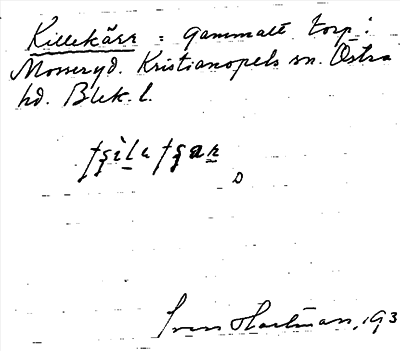 Killekärr = gammalt torp i
Mosseryd. Kristianopels sn. Östra
hd. Blek. l.
Sven Hartman, 193